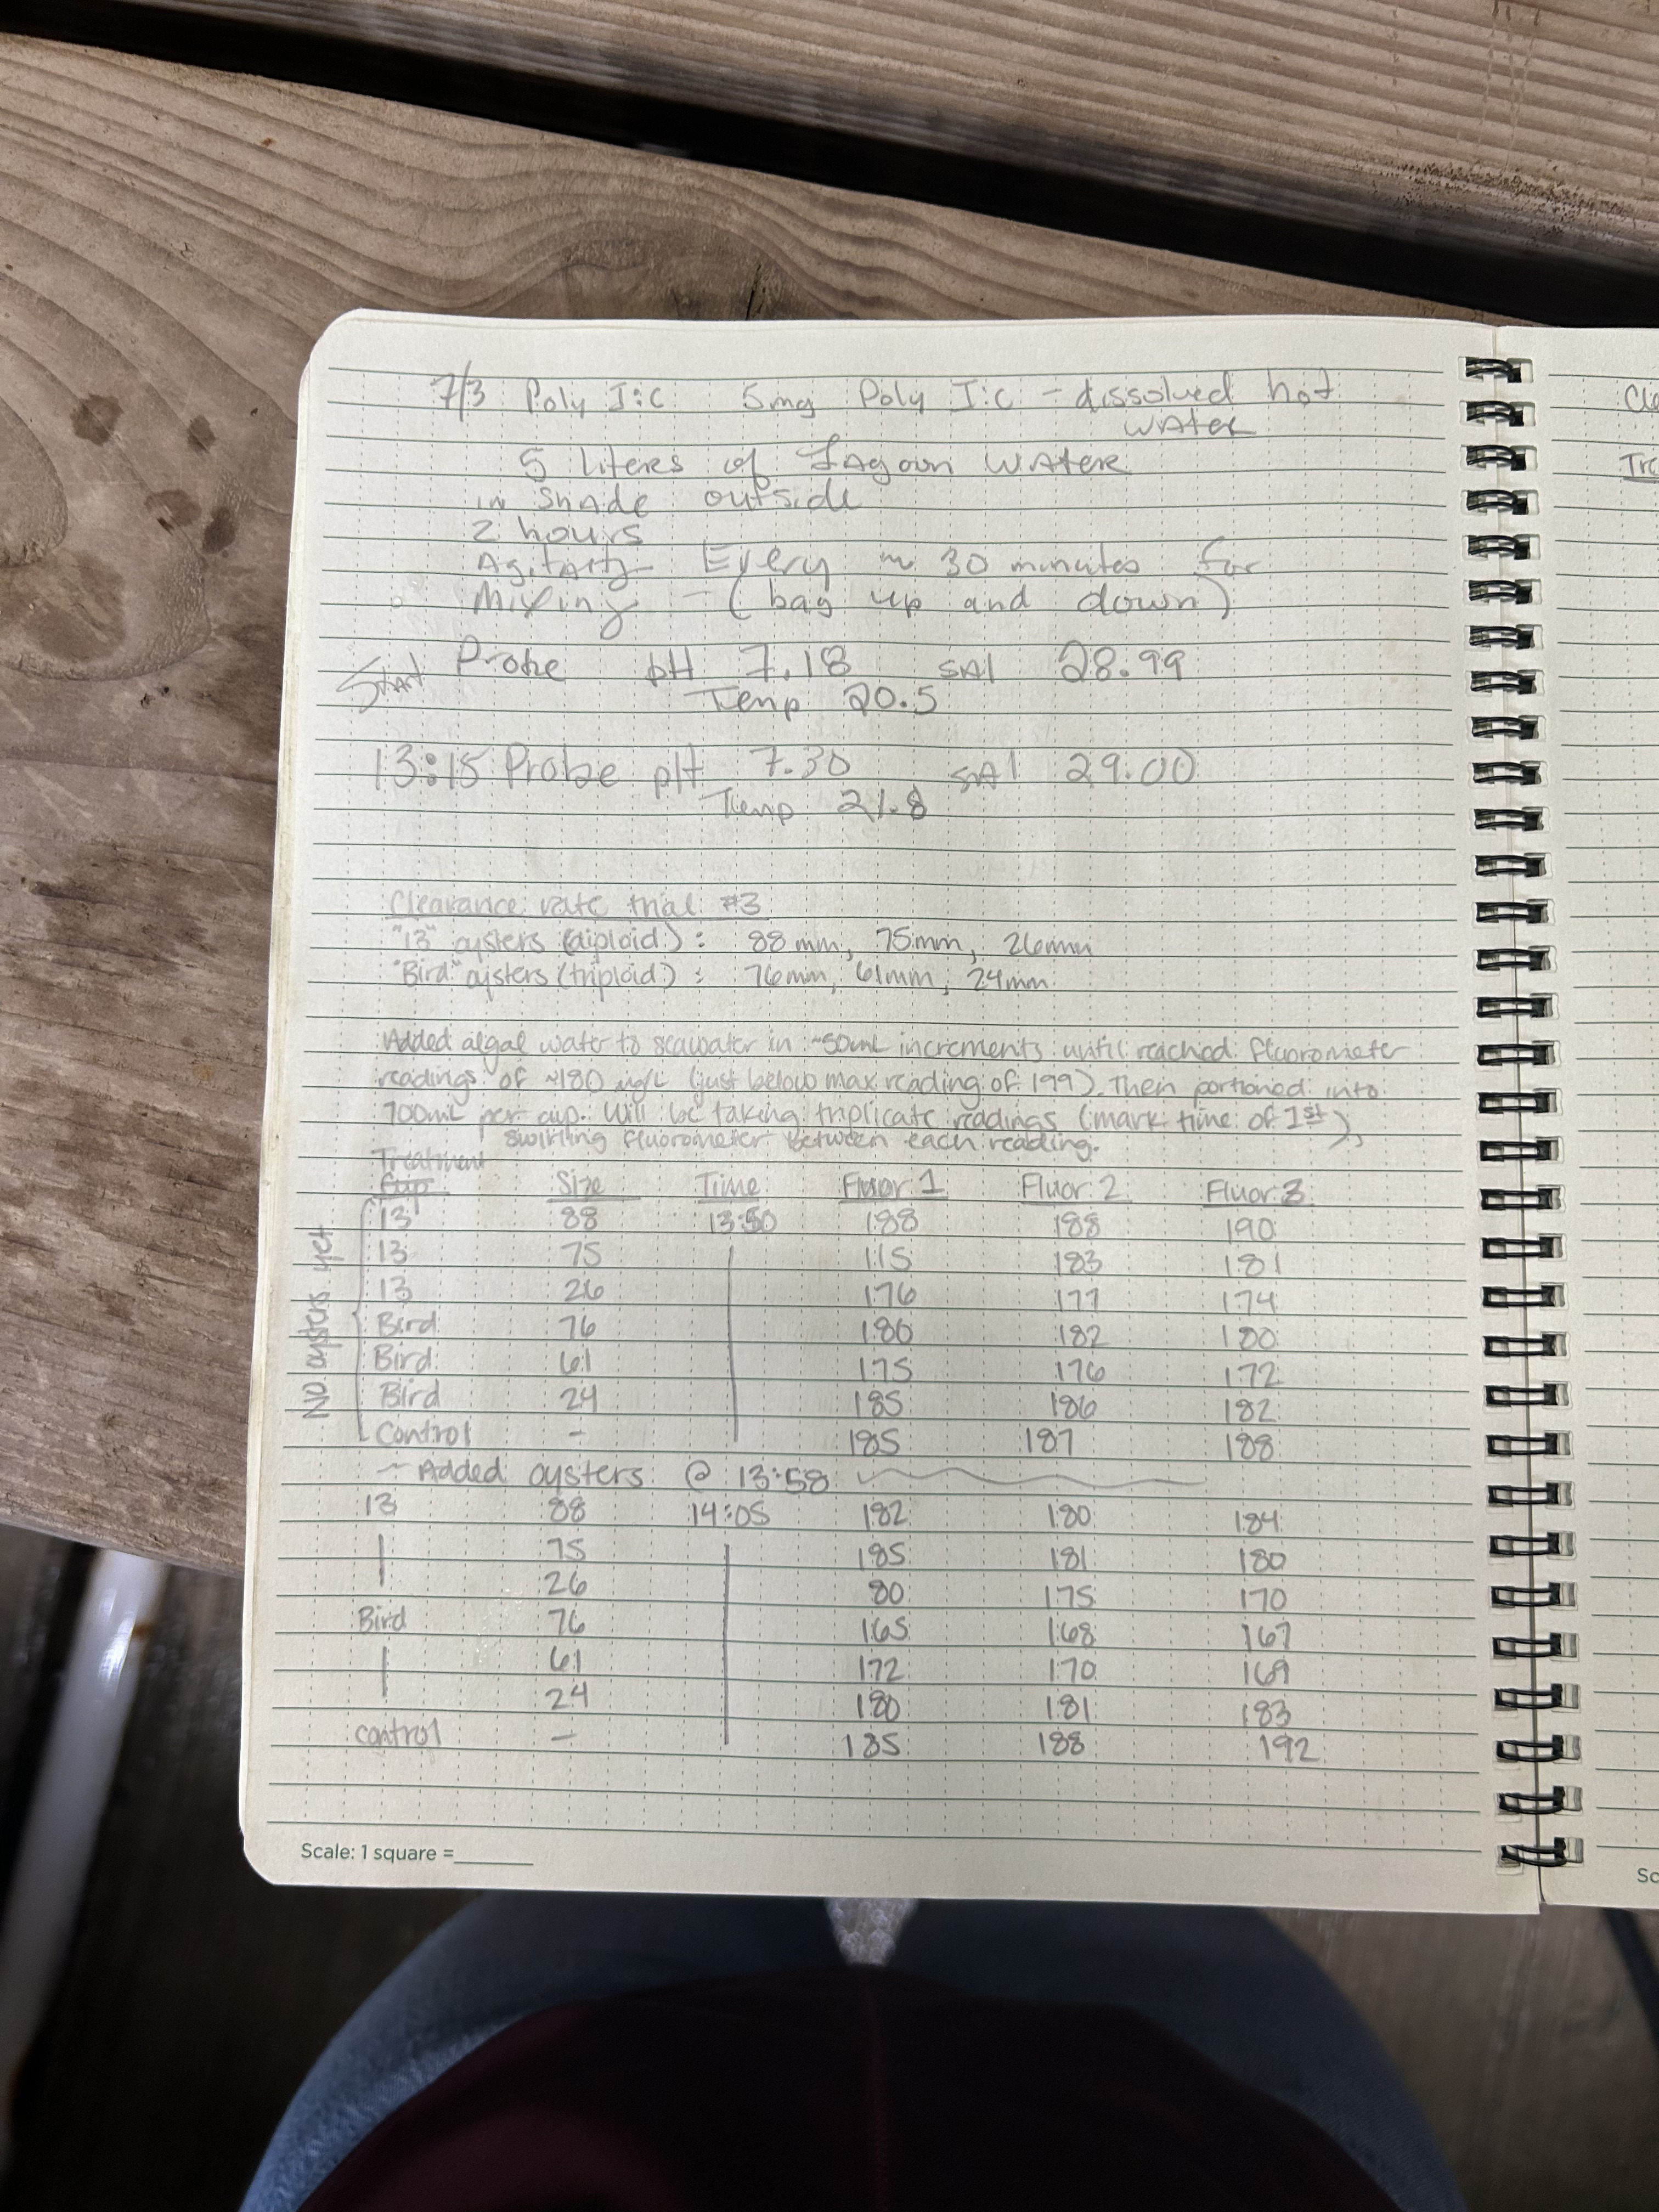 7/3 Poly I:C 5mg Poly I:C - dissolved hot
water
5 liters of Lagoon water
in shade outside
2 hours
Agitate Every ~ 30 minutes for
Mixing - (bag up and down)
Start Probe pH 7.18 sal 28.99
Temp 20.5
13:15 Probe pH 7.30 sal 29.00
Temp 21.8
Clearance rate trial #3
"13" oysters (diploid): 88mm, 75mm, 26mm
"Bird" oysters (triploid): 76mm, 61mm, 24mm
Added algal water to seawater in ~50mL increments until reached fluorometer
readings of ~180 ug/L (just below max reading of 199). Then portioned into
700mL per cup. Will be taking triplicate readings (mark time of 1st),
swirling fluorometer between each reading.
Treatment
Cup Size Time Fluor 1 Fluor 2 Fluor 3
No oysters yet
13 88 13:50 188 188 190
13 75 115 183 181
13 26 176 177 174
Bird 76 180 182 180
Bird 61 175 176 172
Bird 24 185 186 182
Control - 185 187 188
~ Added oysters @ 13:58
13 88 14:05 182 180 184
75 185 181 180
26 80 175 170
Bird 76 165 168 167
61 172 170 169
24 180 181 183
control - 185 188 192
Scale: 1 square =